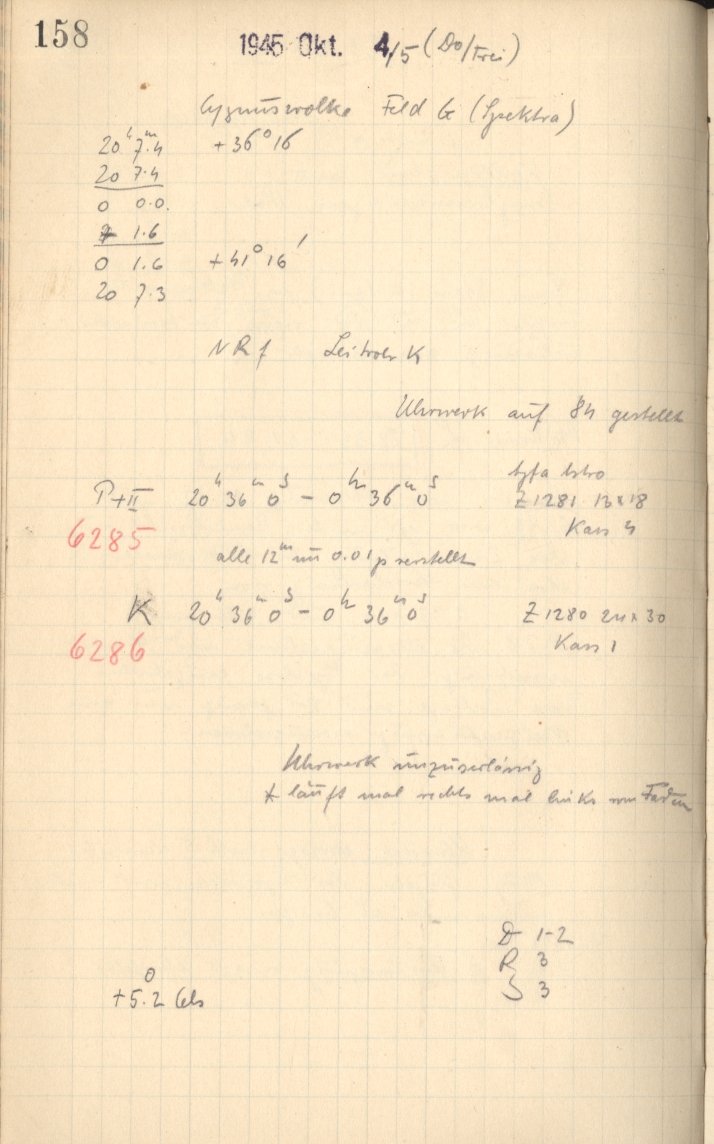 158
1945 Okt. 4/5 (Do/Frei)
Cygnuswolke Feld G (Spektra)
20ʰ 7ᵐ.4 +36° 16
20 7.4
0 0.0.
1.6
0 1.6 +41° 16'
20 7.3
NRf Leitrohr K
Uhrwerk auf 84 gestellt
P+II 20ʰ 36ᵐ 0ˢ – 0ʰ 36ᵐ 0ˢ Z 1281 13x18
6285 Kass 4
alle 12ᵐ um 0.01p verstellt
K 20ʰ 36ᵐ 0ˢ – 0ʰ 36ᵐ 0ˢ Z 1280 24x30
6286 Kass 1
Uhrwerk unzuverlässig
* läuft mal rechts mal links vom Faden
D 1-2
R 3
S 3
+5.2° Cels